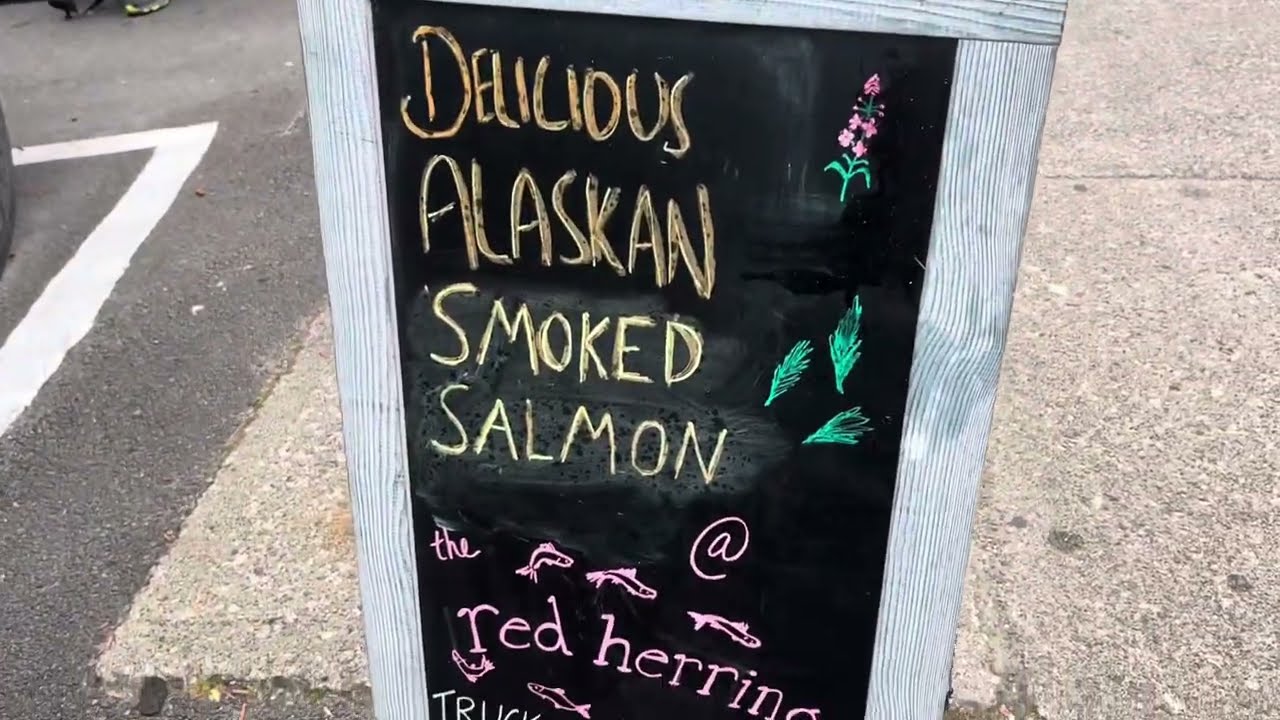 DELICIOUS
ALASKAN
SMOKED
SALMON
@
the
red herring
TRUCK